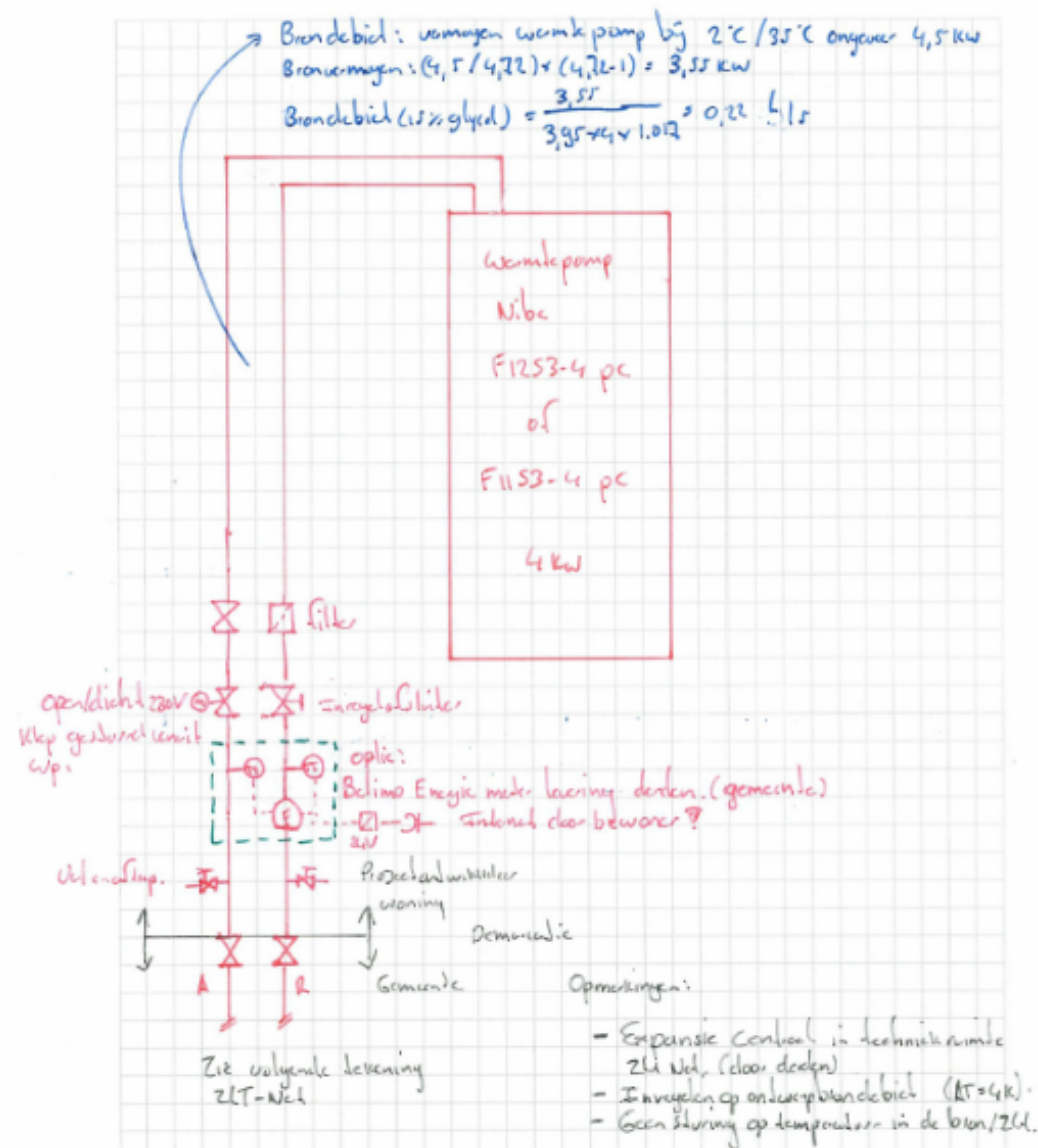 Brondebiet: vermogen warmtepomp bij 2°C/35°C ongeveer 4,5 kW
Bronvermogen: (4,5/4,72) × (4,72-1) = 3,55 kW
Brondebiet (15% glycol) = 3,55 / 3,95×4×1.017 = 0,22 l/s
Warmtepomp
Nibe
F1253-4 pc
of
F1153-4 pc
4 kW
filter
open/dicht 230V
Inregelafsluiter
klep gestuurd vanuit
wp.
optie:
Belimo Energie meter levering derden. (gemeente)
E
Internet door bewoner?
24V
Vul en aftap.
Projectontwikkelaar
woning
Demarcatie
A
R
Gemeente
Opmerkingen:
- Expansie centraal in techniekruimte
ZLT Net. (door derden)
Zie volgende tekening
ZLT-Net
- Inregelen op ontwerpbrondebiet (ΔT=4K).
- Geen sturing op temperatuur in de bron/ZLT.